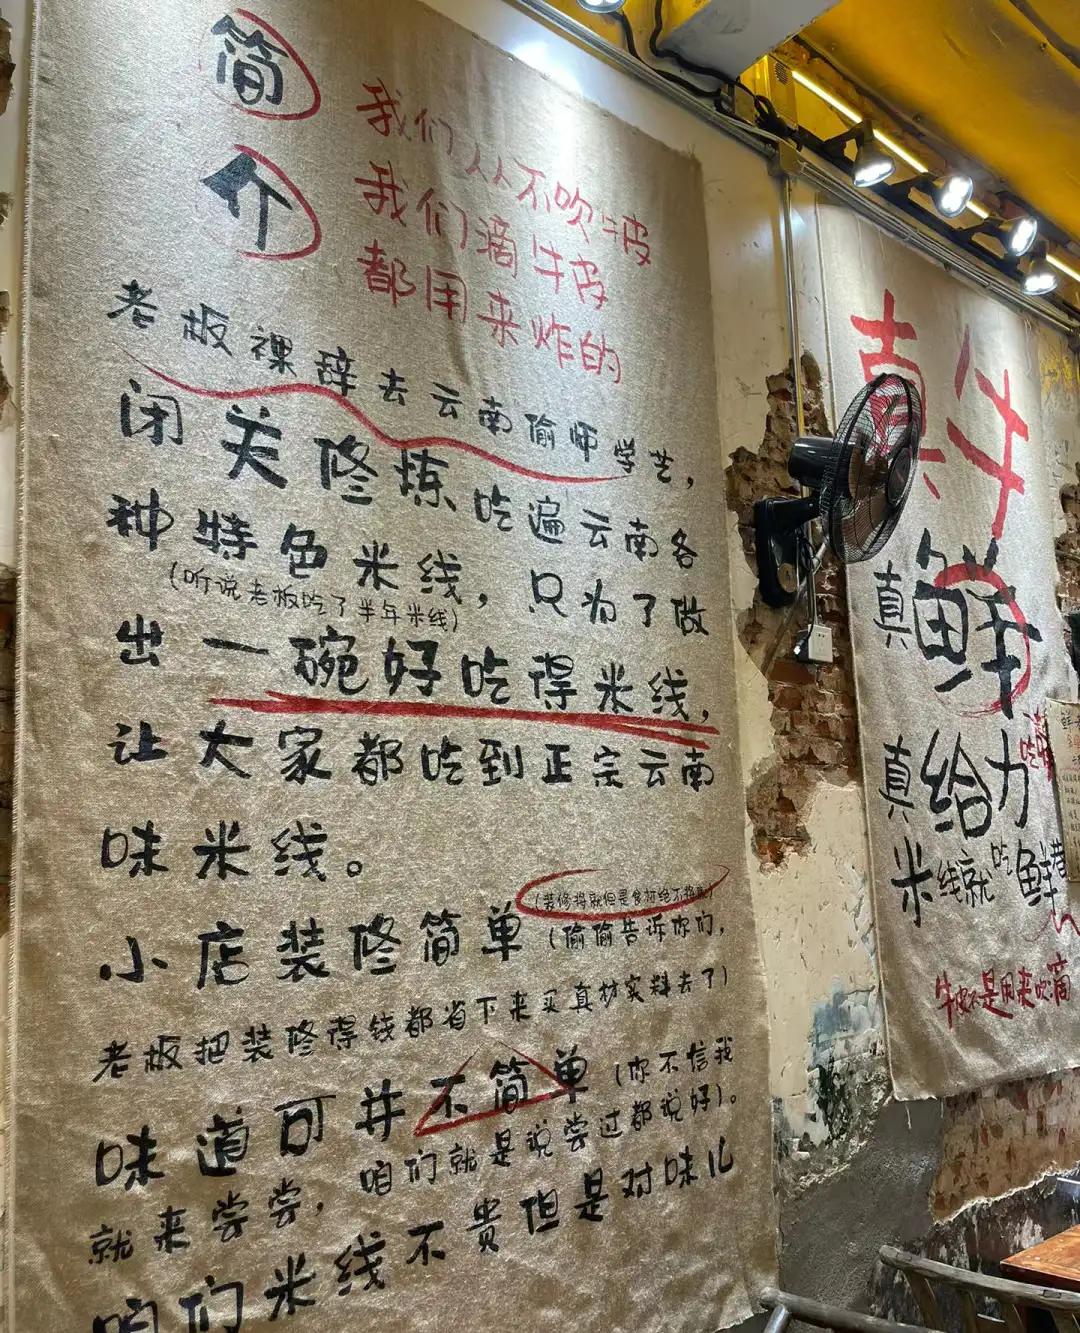 简介
我们从不吹牛皮
我们滴牛皮
都用来炸的
老板裸辞去云南偷师学艺，
闭关修炼吃遍云南各
种特色米线，只为了做
（听说老板吃了半年米线）
出一碗好吃得米线，
让大家都吃到正宗云南
味米线。
小店装修简单（偷偷告诉你们，
老板把装修得钱都省下来买真材实料去了）
味道可并不简单（你不信我
就来尝尝，咱们就是说尝过都说好）。
咱们米线不贵但是对味儿
真牛
真鲜
真给力
米线就吃鲜
牛皮不是用来吹滴